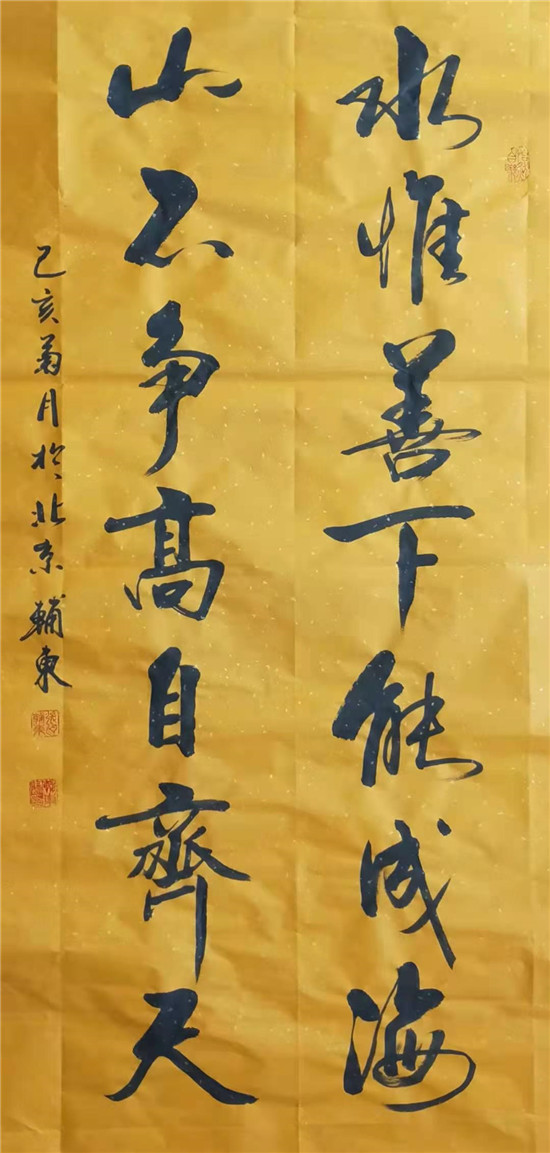 水惟善下能成海
山不争高自齊天
己亥菊月於北京輔東